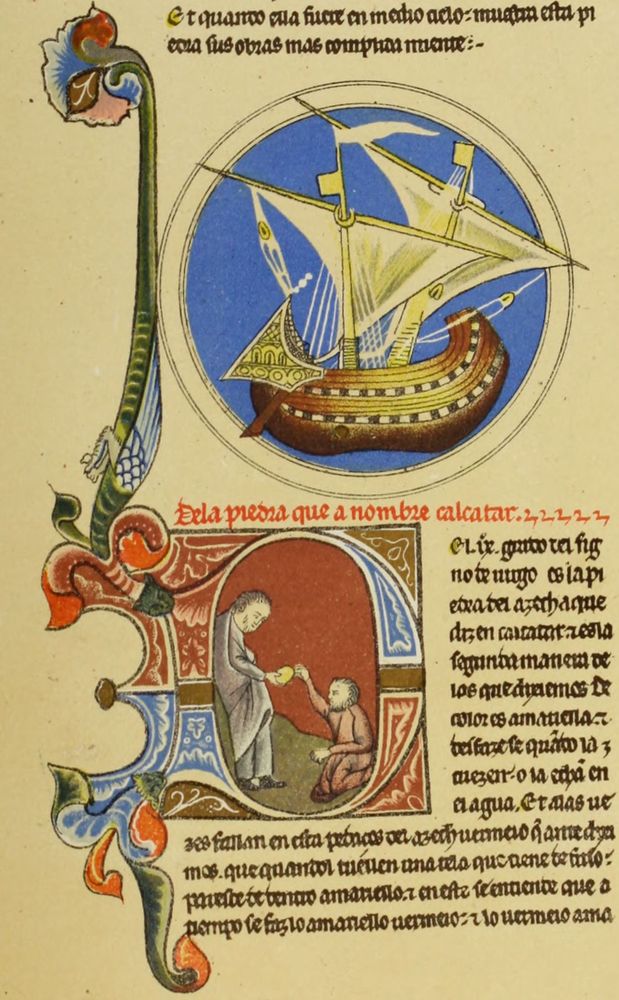 Et quando ella fuere en medio cielo: muestra esta pi
edra sus obras mas complida miente:-
Dela piedra que a nombre calcatar.
El .ix. grado del sig
no de uirgo es la pi
edra del azech a que
dizen calcatar. τ es la
segunda manera de
los que dixiemos. De
color es amariella. τ
desfaze se quãdo la
cuezen. o la echã en
el agua. Et alas ue
zes fallan en esta pedaços del azech uermeio q̃ ante dixi
mos. que quandol tuellen una tela que tiene de suso:
paresce de dentro amariello. τ en esto se entiende que a
tiempo se faz lo amariello uermeio: τ lo uermeio ama